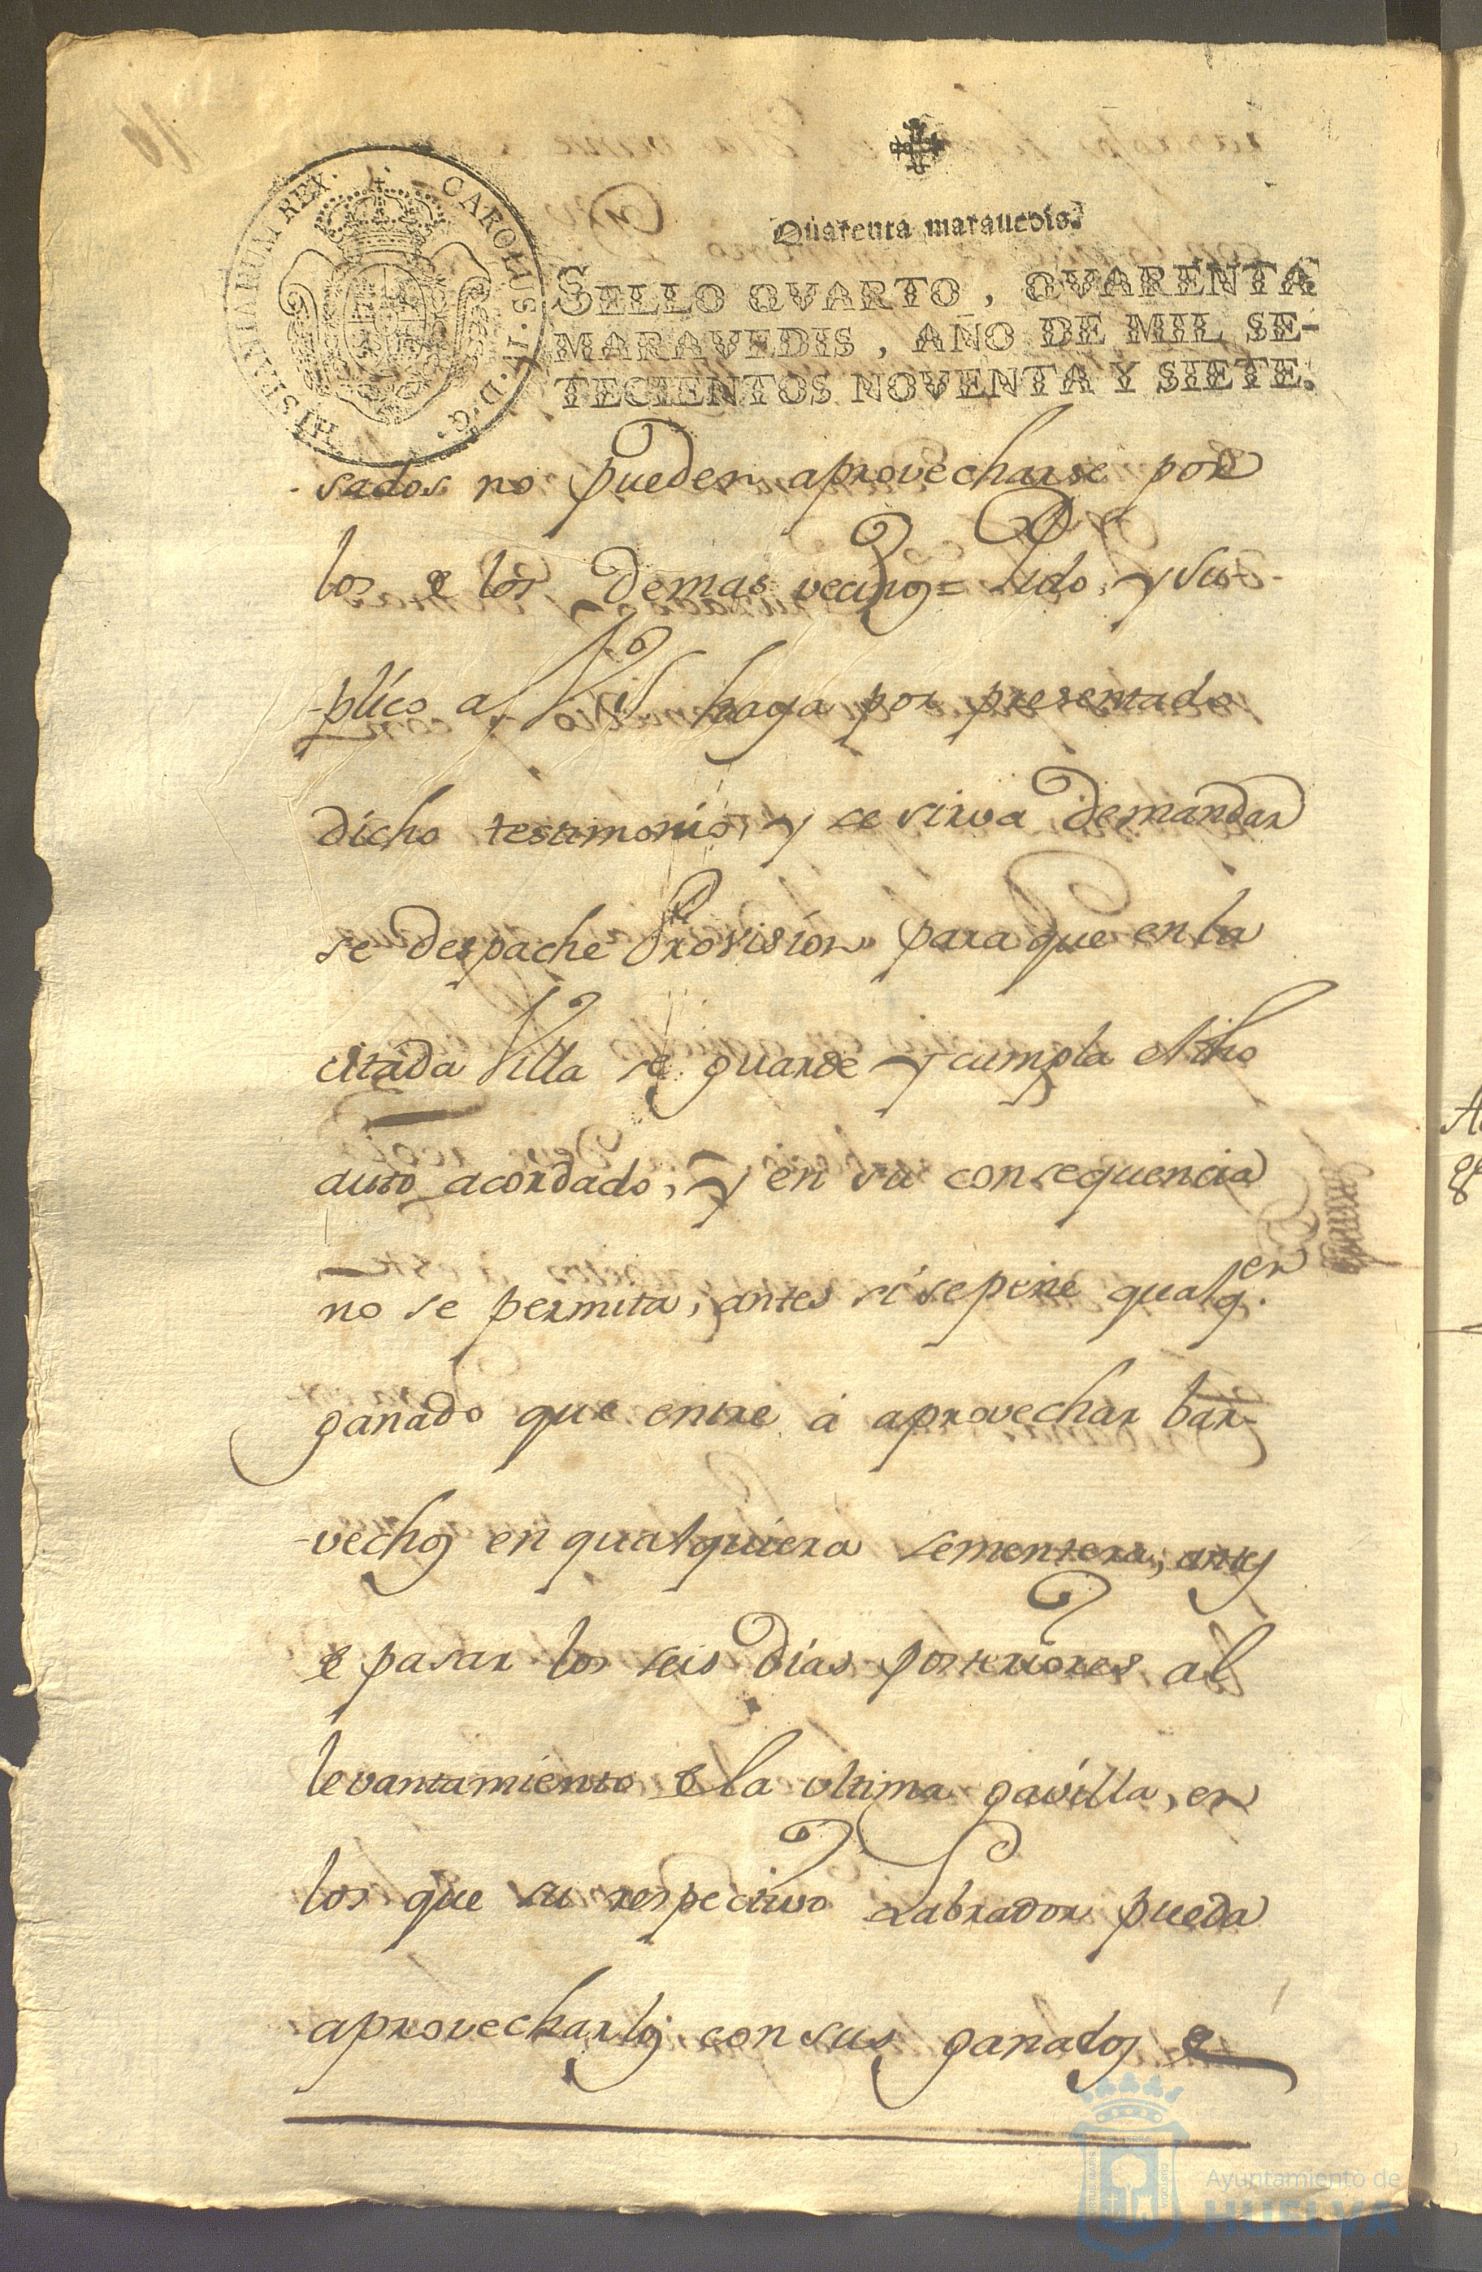 Quarenta marauedis.
SELLO QVARTO, QVARENTA
MARAVEDIS, AÑO DE MIL SE-
TECIENTOS NOVENTA Y SIETE.
CAROLUS. IV. D. G. HISPANIARUM REX.
sados no pueden aprovecharse por
los e los demas vecinos= Pido, y su-
-plico a V.S. haya por presentado
dicho testimonio, y se sirva demandar
se despache Provision para que en la
citada Villa se guarde y cumpla el dho
auto acordado, y en su consequencia
no se permita, antes si se pene qualqer.
ganado que entre á aprovechar bar-
-vechos en qualquiera sementera, antes
e pasar los seis dias posteriores al
levantamiento e la ultima gavilla, en
los que su respectivo Labrador pueda
aprovecharlos con sus ganados e
Ayuntamiento de
HUELVA